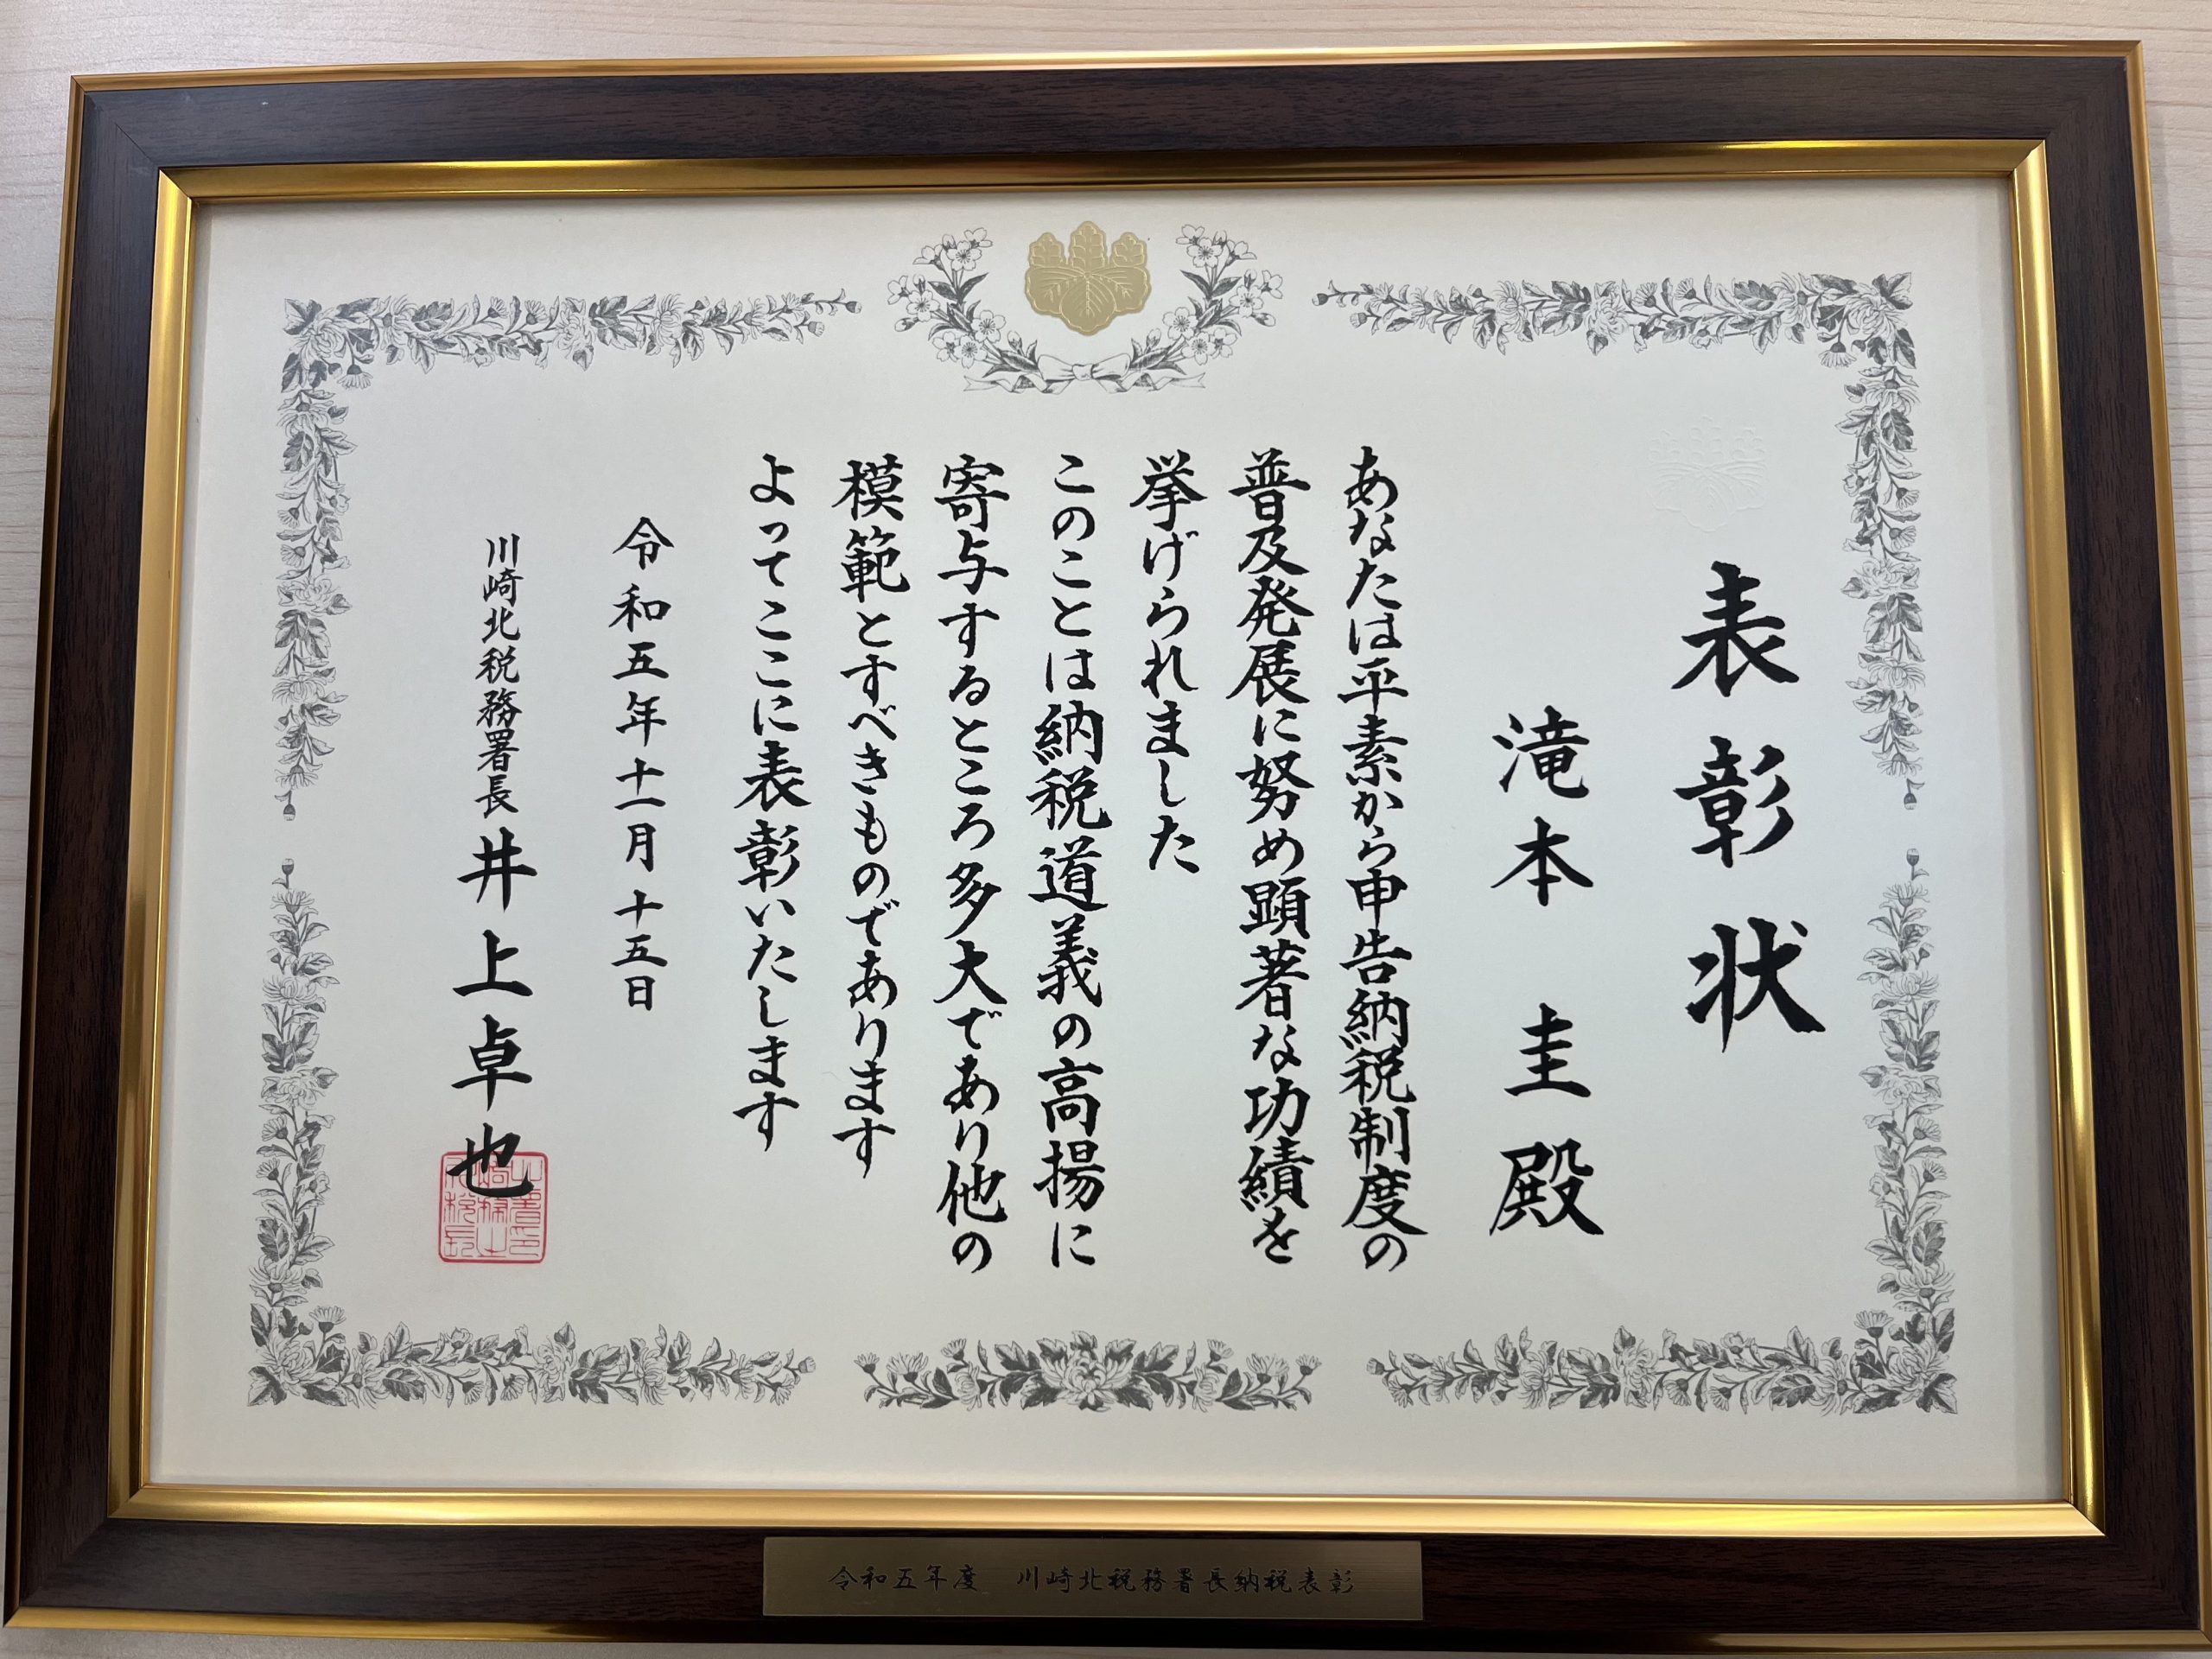 表彰状
滝本 圭 殿
あなたは平素から申告納税制度の
普及発展に努め顕著な功績を
挙げられました
このことは納税道義の高揚に
寄与するところ多大であり他の
模範とすべきものであります
よってここに表彰いたします
令和五年十一月十五日
川崎北税務署長 井上卓也
令和五年度 川崎北税務署長納税表彰